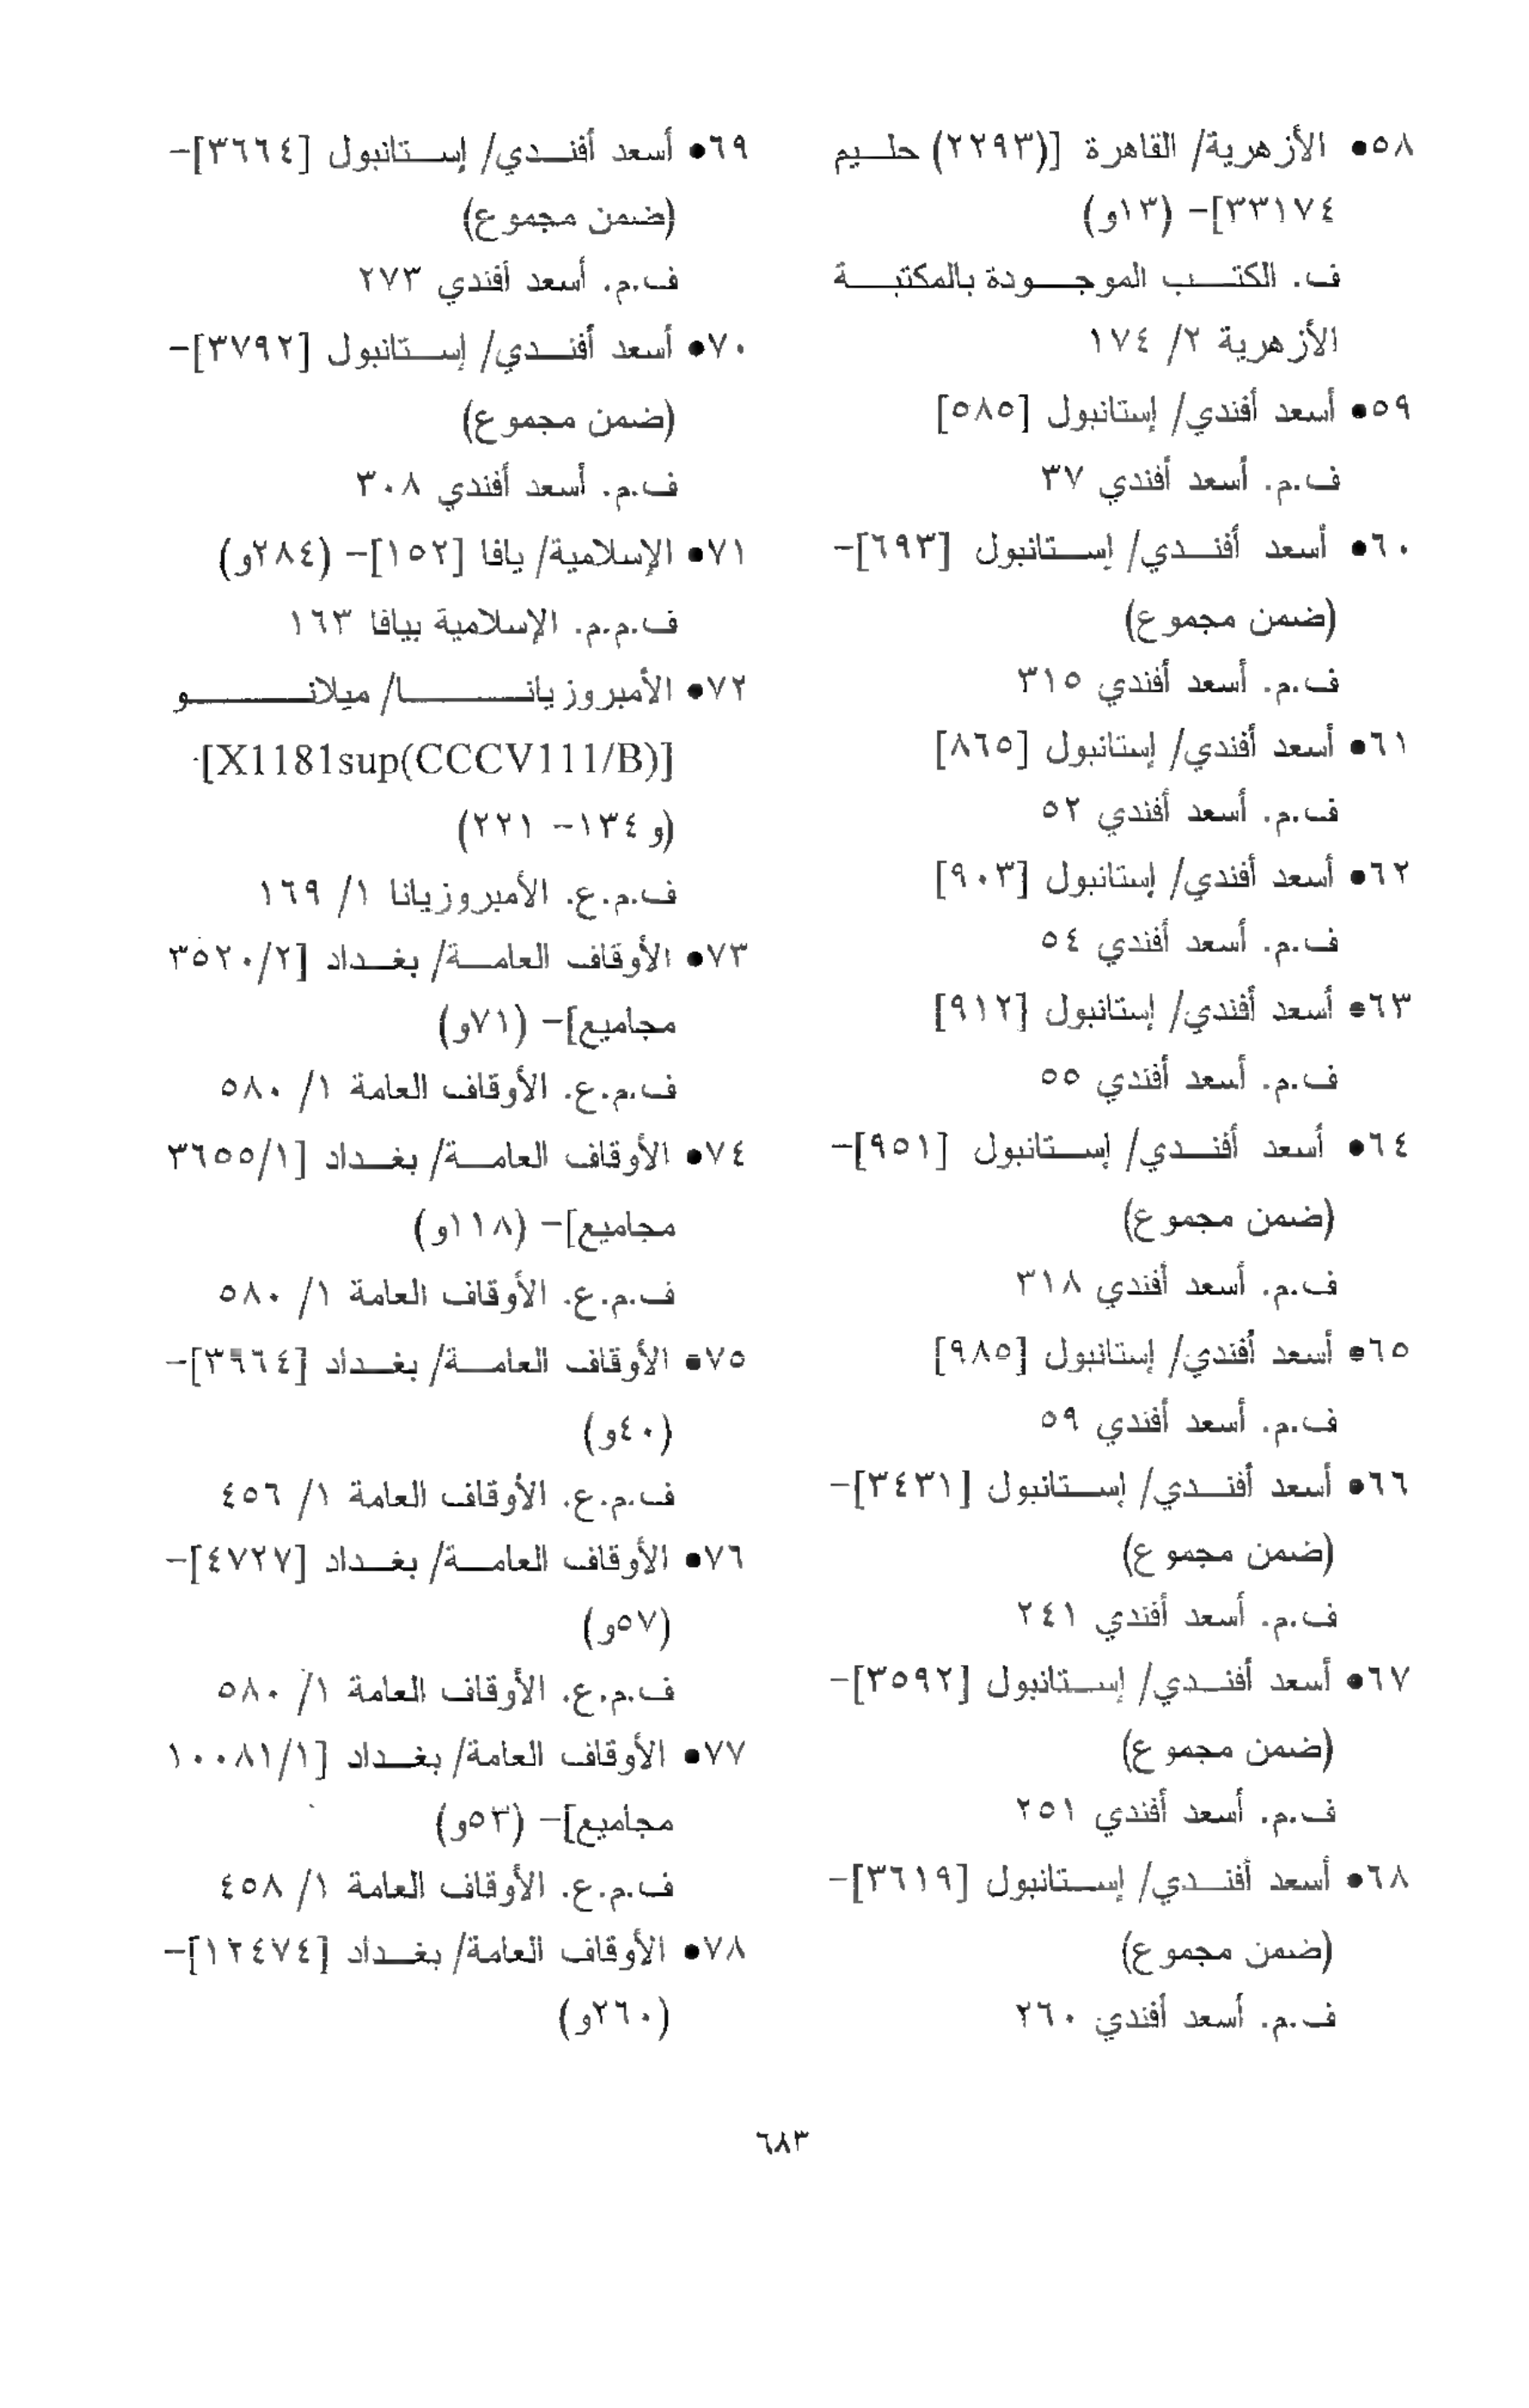 ٥٨● الأزهرية/ القاهرة [(٢٢٩٣) حليم
٣٣١٧٤]- (١٣و)
ف. الكتب الموجودة بالمكتبة
الأزهرية ٢/ ١٧٤
٥٩● أسعد أفندي/ إستانبول [٥٨٥]
ف.م. أسعد أفندي ٣٧
٦٠● أسعد أفندي/ إستانبول [٦٩٣]-
(ضمن مجموع)
ف.م. أسعد أفندي ٣١٥
٦١● أسعد أفندي/ إستانبول [٨٦٥]
ف.م. أسعد أفندي ٥٢
٦٢● أسعد أفندي/ إستانبول [٩٠٣]
ف.م. أسعد أفندي ٥٤
٦٣● أسعد أفندي/ إستانبول [٩١٢]
ف.م. أسعد أفندي ٥٥
٦٤● أسعد أفندي/ إستانبول [٩٥١]-
(ضمن مجموع)
ف.م. أسعد أفندي ٣١٨
٦٥● أسعد أفندي/ إستانبول [٩٨٥]
ف.م. أسعد أفندي ٥٩
٦٦● أسعد أفندي/ إستانبول [٣٤٣١]-
(ضمن مجموع)
ف.م. أسعد أفندي ٢٤١
٦٧● أسعد أفندي/ إستانبول [٣٥٩٢]-
(ضمن مجموع)
ف.م. أسعد أفندي ٢٥١
٦٨● أسعد أفندي/ إستانبول [٣٦١٩]-
(ضمن مجموع)
ف.م. أسعد أفندي ٢٦٠
٦٩● أسعد أفندي/ إستانبول [٣٦٦٤]-
(ضمن مجموع)
ف.م. أسعد أفندي ٢٧٣
٧٠● أسعد أفندي/ إستانبول [٣٧٩٢]-
(ضمن مجموع)
ف.م. أسعد أفندي ٣٠٨
٧١● الإسلامية/ يافا [١٥٢]- (٢٨٤و)
ف.م.م. الإسلامية بيافا ١٦٣
٧٢● الأمبروزيانا/ ميلانو
[X1181sup(CCCV111/B)]-
(و ١٣٤- ٢٢١)
ف.م.ع. الأمبروزيانا ١/ ١٦٩
٧٣● الأوقاف العامة/ بغداد [٣٥٢٠/٢
مجاميع]- (٧١و)
ف.م.ع. الأوقاف العامة ١/ ٥٨٠
٧٤● الأوقاف العامة/ بغداد [٣٦٥٥/١
مجاميع]- (١١٨و)
ف.م.ع. الأوقاف العامة ١/ ٥٨٠
٧٥● الأوقاف العامة/ بغداد
(٤٠و)
ف.م.ع. الأوقاف العامة ١/ ٤٥٦
٧٦● الأوقاف العامة/ بغداد [٤٧٢٧]-
(٥٧و)
ف.م.ع. الأوقاف العامة ١/ ٥٨٠
٧٧● الأوقاف العامة/ بغداد [١٠٠٨١/١
مجاميع]- (٥٣و)
ف.م.ع. الأوقاف العامة ١/ ٤٥٨
٧٨● الأوقاف العامة/ بغداد [١٢٤٧٤]-
(٢٦٠و)
٦٨٣